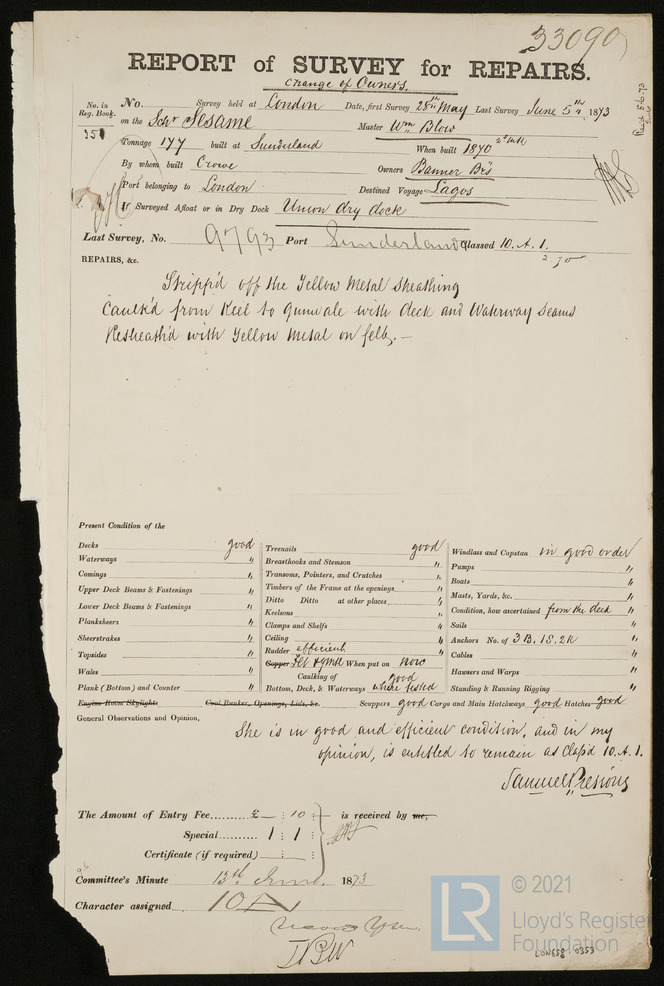 33090
REPORT of SURVEY for REPAIRS.
Change of Owners.
No. in Reg. Book. No. Survey held at London Date, first Survey 28th May Last Survey June 5th 1873
351 on the Schr Sesame Master Wm Blow
Tonnage 177 built at Sunderland When built 1870
By whom built Crowe Owners Banner Brs
Port belonging to London Destined Voyage Lagos
If Surveyed Afloat or in Dry Dock Union dry dock
Last Survey, No. 9793 Port Sunderland Classed 10. A. 1.
REPAIRS, &c.
Stripp'd off the Yellow Metal Sheathing
Caulk'd from Keel to Gunwale with deck and Waterway Seams
Resheath'd with Yellow Metal on felt. —
Present Condition of the
Decks good
Waterways "
Comings "
Upper Deck Beams & Fastenings "
Lower Deck Beams & Fastenings "
Planksheers "
Sheerstrakes "
Topsides "
Wales "
Plank (Bottom) and Counter "
Engine Room Skylights Coal Bunker, Openings, Lids, &c.
Treenails good
Breasthooks and Stemson "
Transoms, Pointers, and Crutches "
Timbers of the Frame at the openings "
Ditto Ditto at other places "
Keelsons "
Clamps and Shelfs "
Ceiling "
Rudder efficient "
Copper When put on now
Caulking of good
Bottom, Deck, & Waterways where tested
Windlass and Capstan in good order
Pumps "
Boats "
Masts, Yards, &c. "
Condition, how ascertained from the deck "
Sails "
Anchors No. of 3 B. 1S. 2K "
Cables "
Hawsers and Warps "
Standing & Running Rigging "
Scuppers good Cargo and Main Hatchways good Hatches good
General Observations and Opinion,
She is in good and efficient condition, and in my
opinion, is entitled to remain as Class'd 10. A. 1.
The Amount of Entry Fee £ — : 10 : is received by me,
Special 1 : 1 :
Certificate (if required)
Committee's Minute 13th June 1873
Character assigned 10 A
© 2021
LR
Lloyd's Register
Foundation
LON658-0353